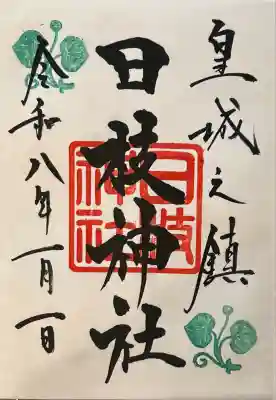 皇城之鎮
日枝神社
日枝神社
令和八年一月一日